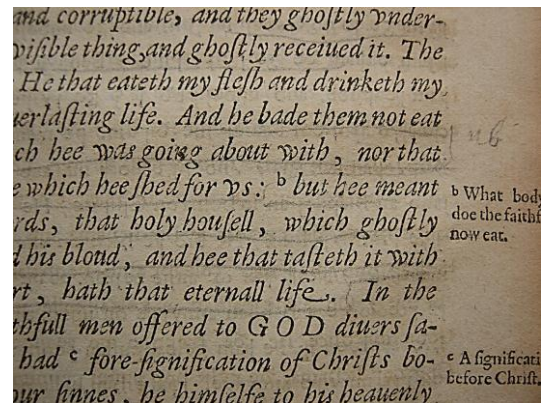 and corruptible, and they ghoſtly vnder-
viſible thing, and ghoſtly receiued it. The
He that eateth my fleſh and drinketh my
uerlaſting life. And he bade them not eat
ch hee was going about with, nor that
e which hee ſhed for vs: b but hee meant
rds, that holy houſell, which ghoſtly
d his bloud, and hee that taſteth it with
rt, hath that eternall life. In the
thfull men offered to GOD diuers ſa-
had c fore-ſignification of Chriſts bo-
our ſinnes, he himſelfe to his heauenly
nb
b What body
doe the faithf
now eat.
c A ſignificati
before Chriſt.